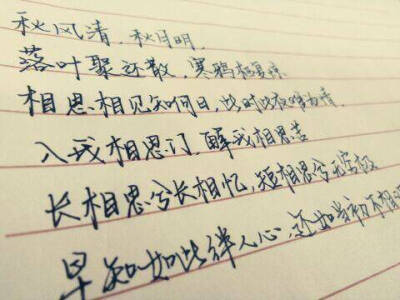 秋风清,秋月明,
落叶聚还散,寒鸦栖复惊
相思相见知何日,此时此夜难为情,
入我相思门,解我相思苦
长相思兮长相忆,短相思兮无穷极
早知如此绊人心,还如当初不相